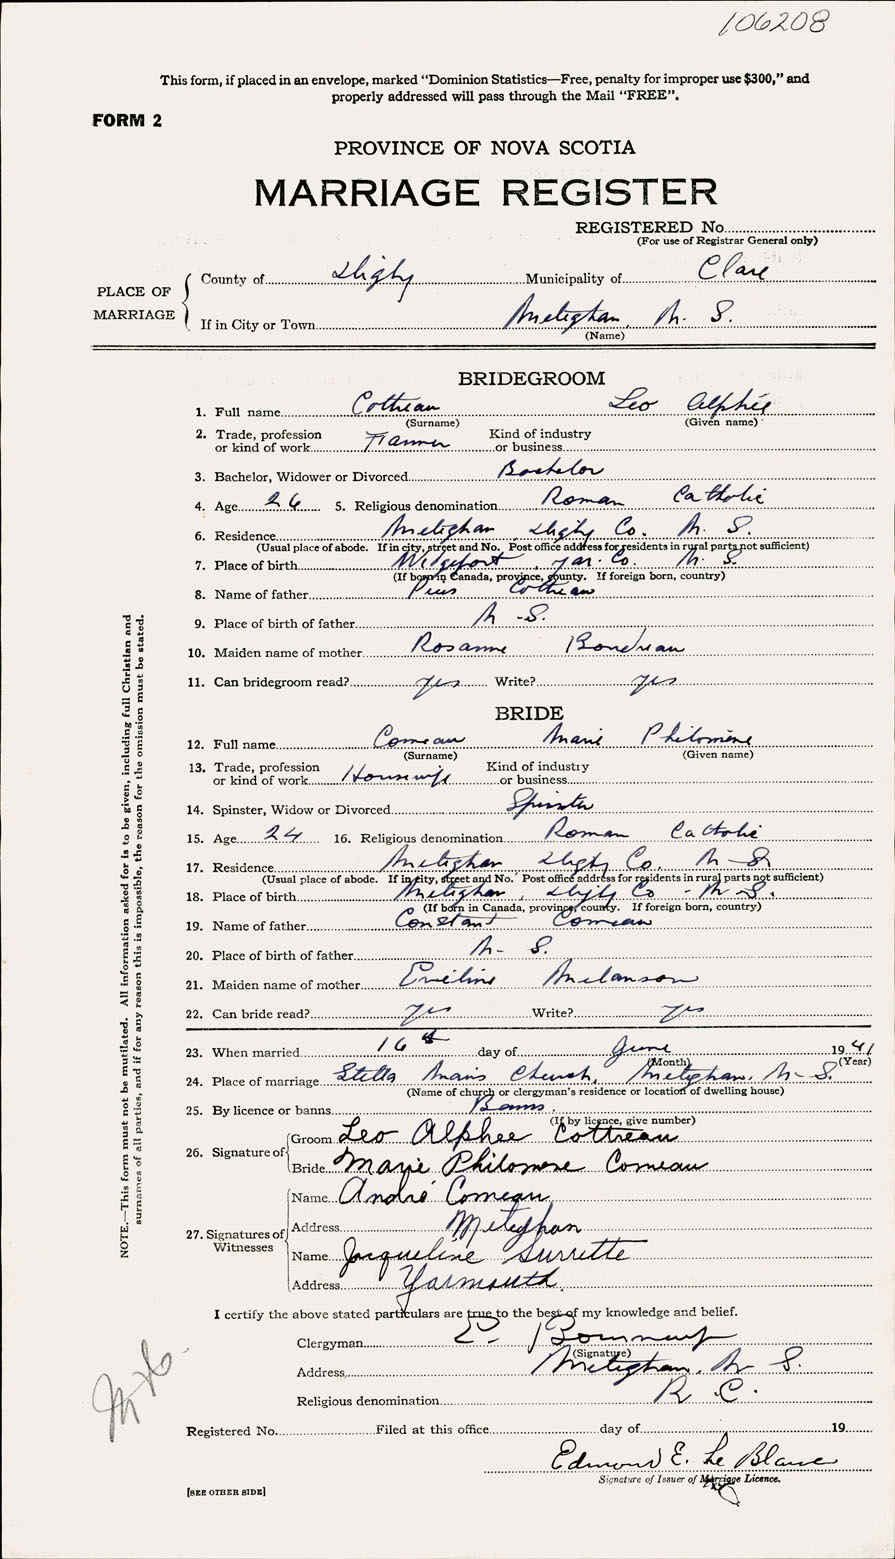 106208
This form, if placed in an envelope, marked "Dominion Statistics—Free, penalty for improper use $300," and
properly addressed will pass through the Mail "FREE".
FORM 2
PROVINCE OF NOVA SCOTIA
MARRIAGE REGISTER
REGISTERED No.
(For use of Registrar General only)
PLACE OF MARRIAGE
County of Digby Municipality of Clare
If in City or Town Meteghan, N. S.
(Name)
BRIDEGROOM
1. Full name Cottreau Leo Alphée
(Surname) (Given name)
2. Trade, profession or kind of work Kind of industry or business
3. Bachelor, Widower or Divorced Bachelor
4. Age 26 5. Religious denomination Roman Catholic
6. Residence Meteghan Digby Co. N. S.
(Usual place of abode. If in city, street and No. Post office address for residents in rural parts not sufficient)
7. Place of birth Wedgeport, Yar. Co. N. S.
(If born in Canada, province, county. If foreign born, country)
8. Name of father Pius Cottreau
9. Place of birth of father N-S.
10. Maiden name of mother Rosanne Boudreau
11. Can bridegroom read? yes Write? yes
BRIDE
12. Full name Comeau Marie Philomène
(Surname) (Given name)
13. Trade, profession or kind of work Housewife Kind of industry or business
14. Spinster, Widow or Divorced Spinster
15. Age 24 16. Religious denomination Roman Catholic
17. Residence Meteghan Digby Co. N-S
(Usual place of abode. If in city, street and No. Post office address for residents in rural parts not sufficient)
18. Place of birth Meteghan, Digby Co - N-S.
(If born in Canada, province, county. If foreign born, country)
19. Name of father Constant Comeau
20. Place of birth of father N- S.
21. Maiden name of mother Eveline Melanson
22. Can bride read? yes Write? yes
23. When married 16th day of June 1941
(Month) (Year)
24. Place of marriage Stella Maris Church, Meteghan, N-S.
(Name of church or clergyman's residence or location of dwelling house)
25. By licence or banns Banns.
(If by licence, give number)
26. Signature of
Groom Leo Alphee Cottreau
Bride Marie Philomene Comeau
27. Signatures of Witnesses
Name André Comeau
Address Meteghan
Name Jacqueline Surrette
Address Yarmouth.
I certify the above stated particulars are true to the best of my knowledge and belief.
Clergyman
(Signature)
Address Meteghan, N- S.
Religious denomination R. C.
Registered No. Filed at this office day of 19
Edmond E. Le Blanc
Signature of Issuer of Marriage Licence.
[SEE OTHER SIDE]
NOTE.—This form must not be mutilated. All information asked for is to be given, including full Christian and
surnames of all parties, and if for any reason this is impossible, the reason for the omission must be stated.